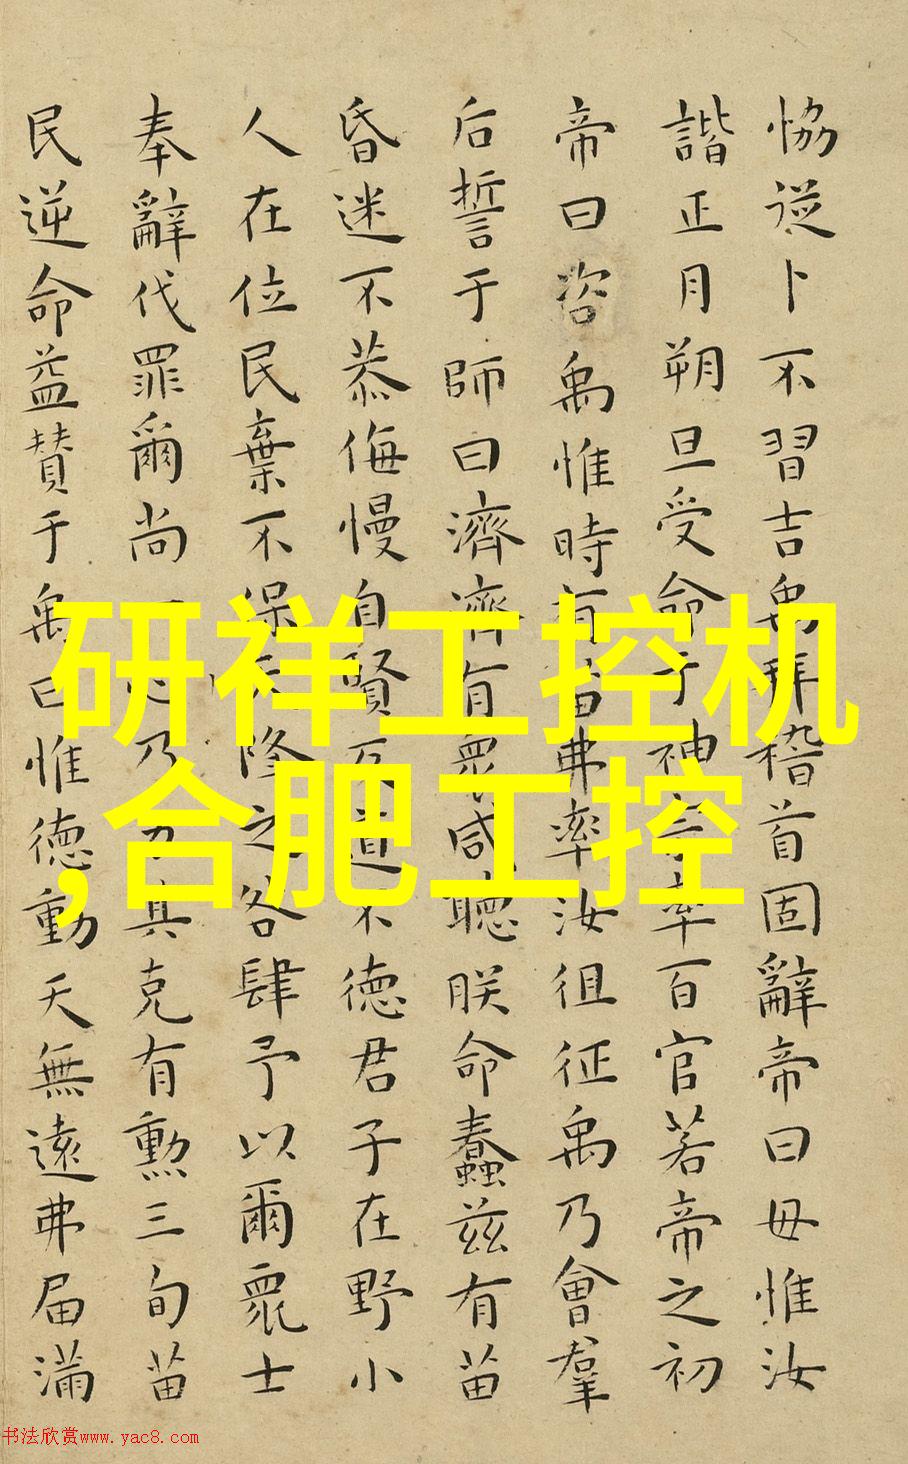 恊從卜不習吉禹拜稽首固辭帝曰毋惟汝
諧正月朔旦受命于神宗率百官若帝之初
帝曰咨禹惟時有苗弗率汝徂征禹乃會羣
后誓于師曰濟濟有衆咸聽朕命蠢茲有苗
昏迷不恭侮慢自賢反道不徳君子在野小
人在位民棄不保天降之咎肆予以爾衆士
奉辭伐罪爾尚一心乃力其克有勲三旬苗
民逆命益賛于禹曰惟徳動天無遠弗届滿
研祥工控机
,合肥工控
书法欣赏www.yac8.com